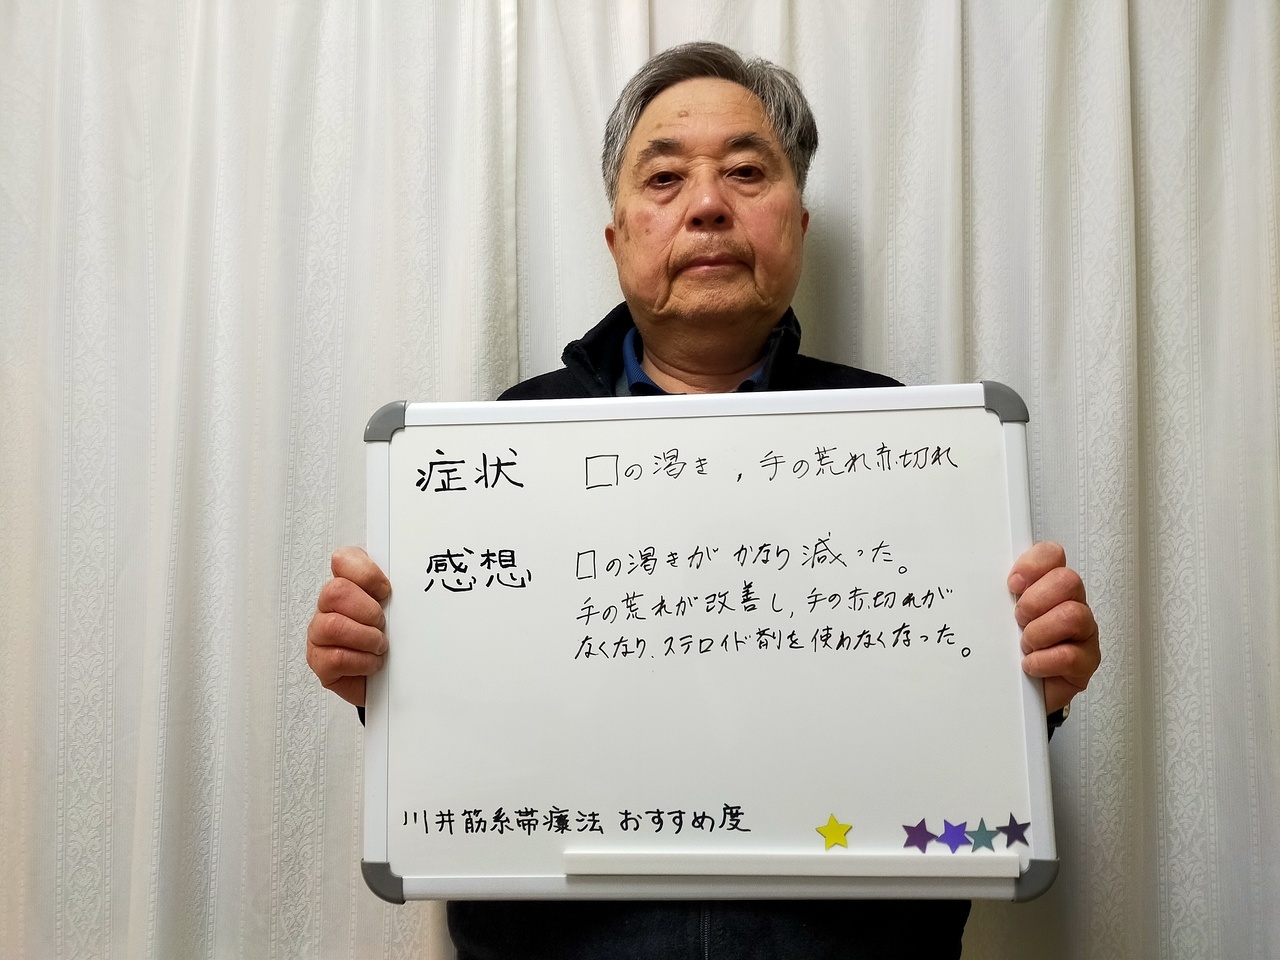 症状 口の渇き, 手の荒れ赤切れ
感想 口の渇きがかなり減った。
手の荒れが改善し, 手の赤切れが
なくなり、ステロイド剤を使わなくなった。
川井筋系帯療法 おすすめ度